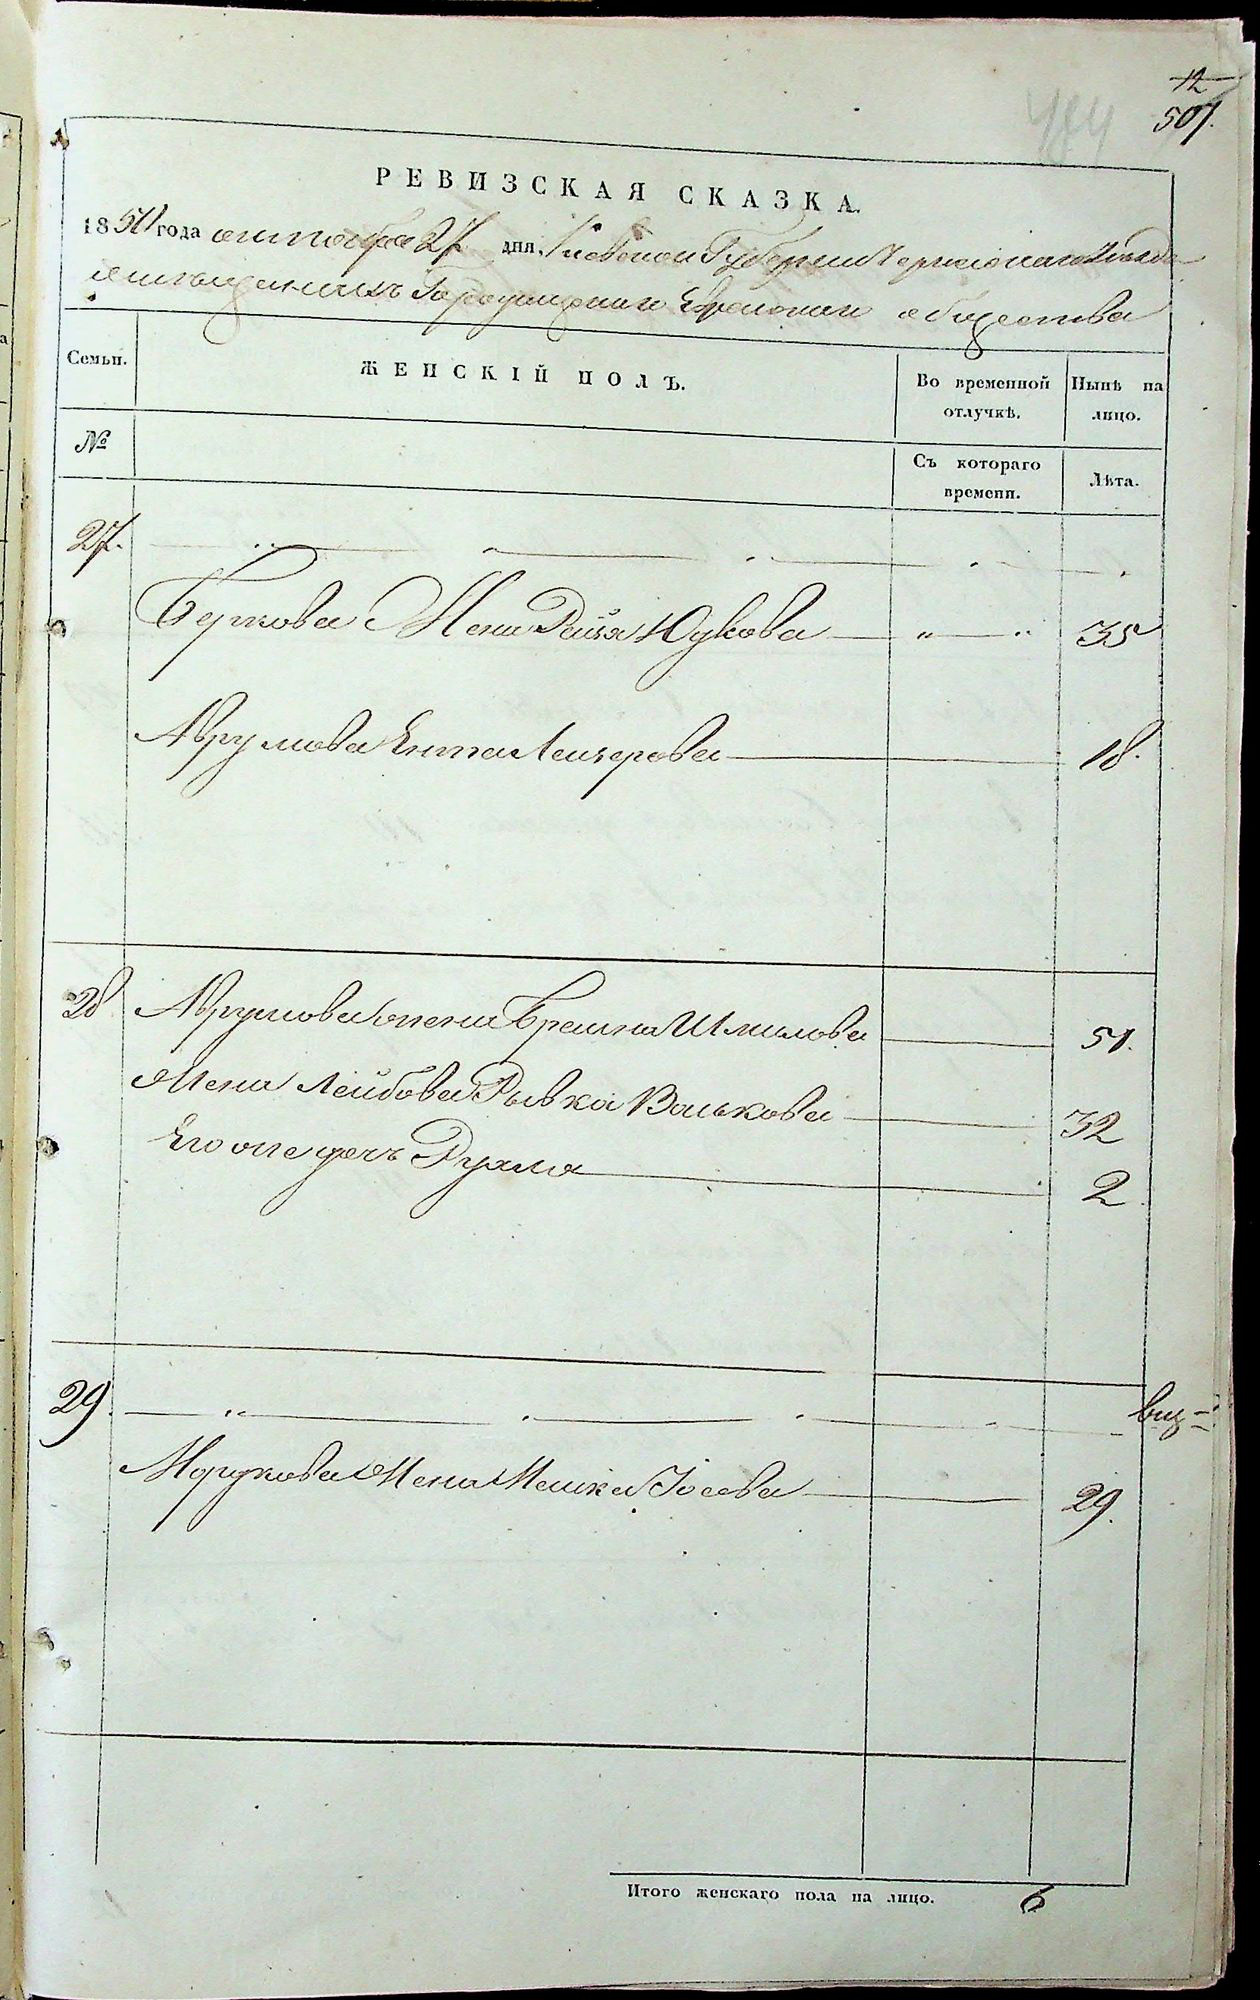 12
507.
484
РЕВИЗСКАЯ СКАЗКА.
1850 года октября 27 дня. Киевской Губернии Черкаскаго Уезда
мещанскихъ Городищскаго Еврейскаго общества
Семьи.
ЖЕНСКІЙ ПОЛЪ.
Во временной отлучкѣ.
Нынѣ на лицо.
№
Съ котораго времени.
Лѣта.
27.
Беркова Жена Рейзя Юдкова — " — " 35
Аврумова Ента Лейзерова 18.
28 Аврумова жена Брайна Шмилова 51.
Жена Лейбова Рывка Волькова 32
Его же дочь Рухля 2
29.
Мордкова Жена Машка Іосева 29.
Итого женскаго пола на лицо. 6